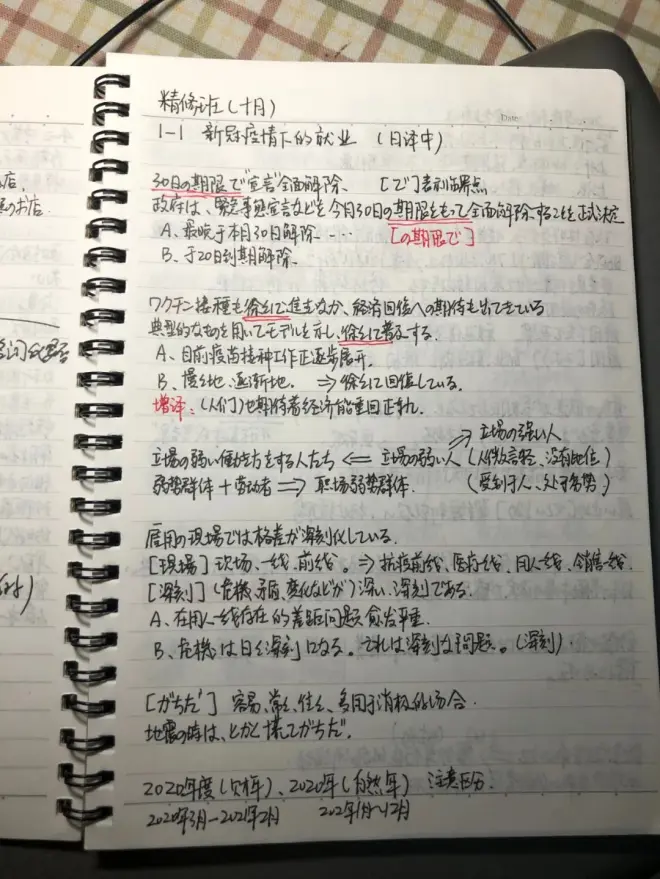 精修班(十月)
Date
1-1 新冠疫情下的就业 (日译中)
店、
のお店.
30日の期限で"宣言"全面解除、 [で]表示临界点
政府は、緊急事態宣言などを今月30日の期限をもって全面解除することを正式決定
A、最晚于本月30日解除… [の期限で]
B、于20日到期解除.
ワクチン接種も徐々に進むなか、経済回復への期待も出てきている
典型的なものを用いてモデルを示し、徐々に普及する.
A、目前疫苗接种工作正逐步展开.
B、慢慢地、逐渐地. ⇒ 徐々に回復している.
增译:(人们)也期待着经济能重回正轨.
⇒ 立場の強い人
立場の弱い働き方をする人たち ⇐ 立場の弱い人 (人微言轻、没有地位)
弱势群体+劳动者 ⇒ 职场弱势群体. (受制于人、处于劣势)
雇用の現場では格差が深刻化している.
[現場] 现场、一线、前线。⇒ 抗疫前线、医疗一线、用人一线、销售一线.
[深刻] (危機、矛盾、変化などが)深い、深刻である.
A、在用人一线存在的差距问题愈发严重.
B、危機は日々深刻になる。これは深刻な問題。(深刻)
[がちだ] 容易、常常、往往、多用于消极的场合.
地震の時は、とかく慌てがちだ.
2020年度(欠样)、2020年(自然年) 注意区分.
2020年3月-2021年2月 2020年1月~12月